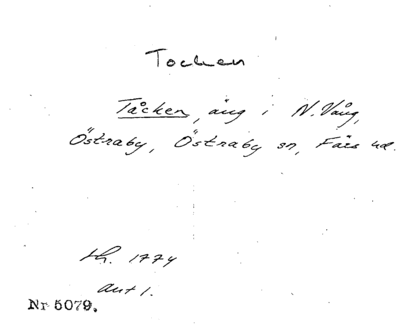 Tocken
Tåcken, äng i N. Vång,
Östraby, Östraby sn, Färs hd.
Lh. 1774
ant 1.
Nr 5079.